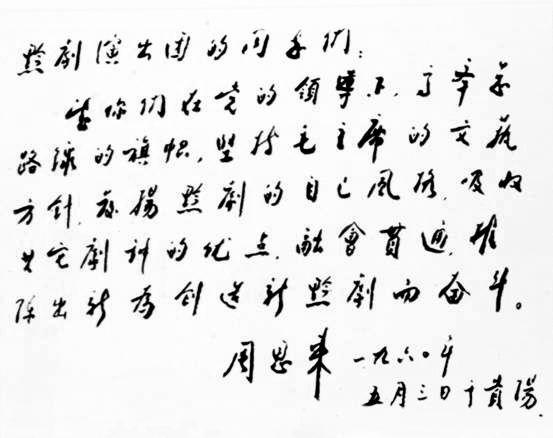 黔劇演出團的同志們:
望你們在党的領導下,高举总
路線的旗帜,坚持毛主席的文艺
方針,發揚黔劇的自己風格,吸收
其它劇种的优点,融會貫通,推
陈出新,为创造新黔劇而奋斗。
周恩来 一九六〇年
五月三日于貴陽.